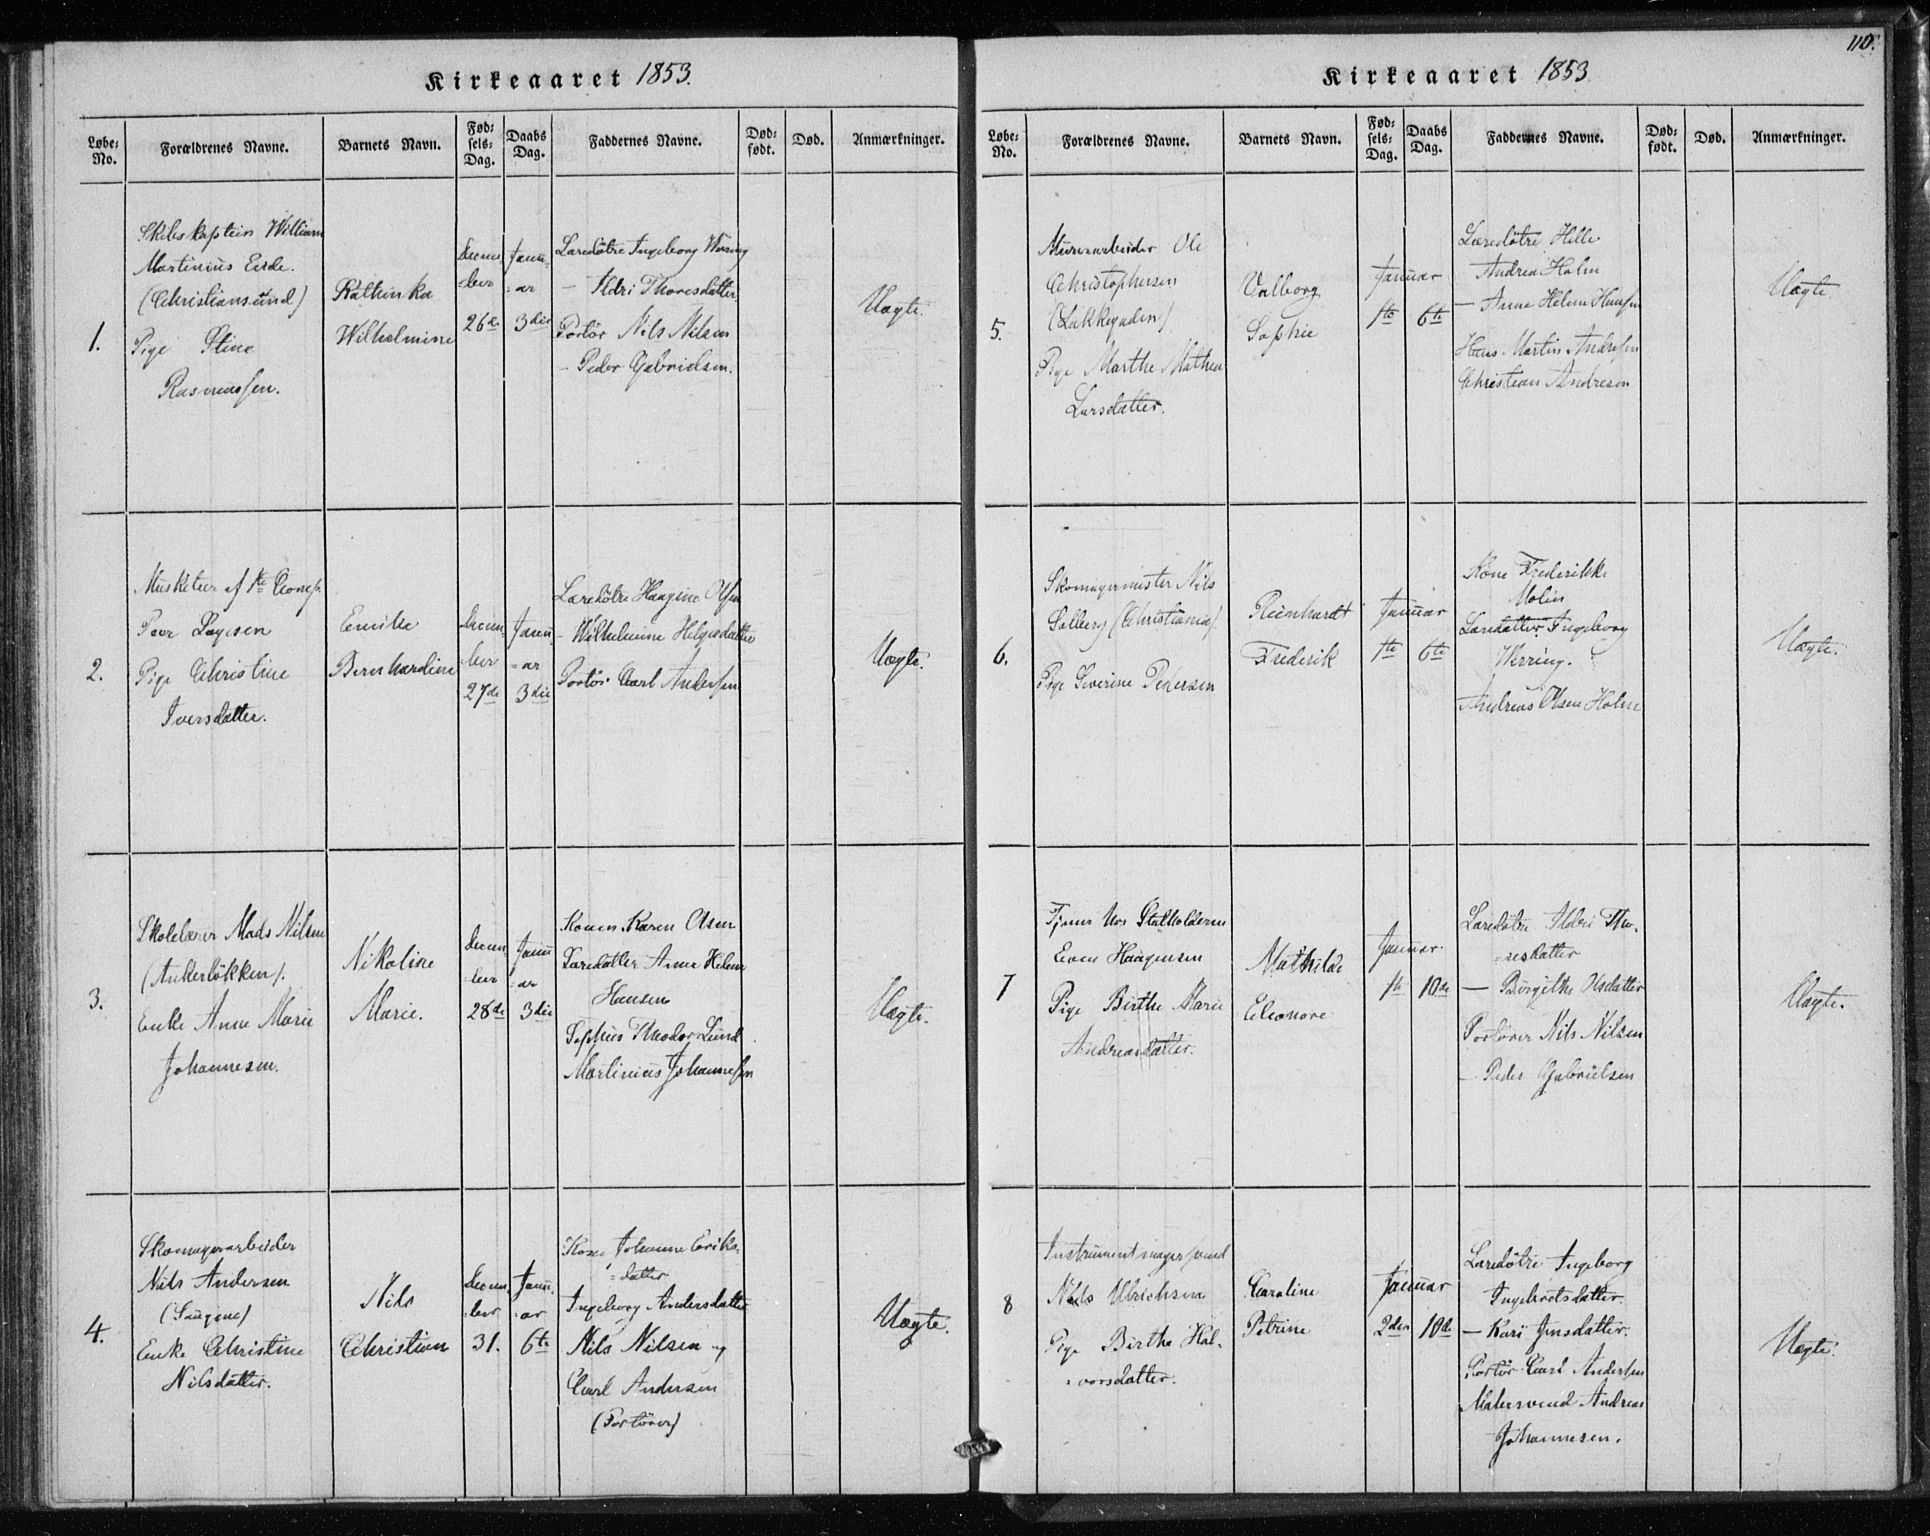 Kirkeaaret 1853.
Løbe-No.
Forældrenes Navne.
Barnets Navn.
Fødsels-Dag.
Daabs Dag.
Faddernes Navne.
Dødfødt.
Død.
Anmærkninger.
1.
Skibskaptein William
Martinius
(Christiansund)
Pige Stine
Rasmussen.
Kathinka
Wilhelmine
Decem-
ber
26de
Janu-
ar
3die
Læredøtre Ingeborg
— Ildri Thoresdatter
Portør Nils Nilsen
— Peder Gabrielsen.
Uægte.
2.
Musketeer af 1te Comp.
Peer
Pige Christine
Iversdatter.
Emilie
Bernhardine
Decem-
ber
27de
Janu-
ar
3die
Læredøtre Haagine Olsen
— Wilhelmine Helgesdatter
Portør Carl Andersen
Uægte.
3.
Skolelærer Mads Nilsen
(Ankerløkken).
Enke Anne Marie
Johannesen.
Nikoline
Marie.
Decem-
ber
28de
Janu-
ar
3die
Konen Karen Olsen
Læredatter Anne Helene
Hansen
Sophus Theodor Lund
Martinius Johannessen
Uægte.
4.
Skomagerarbeider
Nils Andersen
(Saugene)
Enke Christine
Nilsdatter.
Nils
Christian
Decem-
ber
31.
Janu-
ar
6te
Kone Johanne Eriks-
datter
Ingeborg Andersdatter
Nils Nilsen og
Carl Andersen
(Portører)
Uægte.
110.
Kirkeaaret 1853
Løbe-No.
Forældrenes Navne.
Barnets Navn.
Fødsels-Dag.
Daabs Dag.
Faddernes Navne.
Dødfødt.
Død.
Anmærkninger.
5.
Murerarbeider Ole
Christophersen
(Lakkegaden)
Pige Marthe Mathea
Larsdatter.
Valborg
Sophie
Januar
1te 6te
Læredøtre Helle
Andrea Holm
— Anne Helene Hansen
Hans Martin Andresen
Christian Andresen
Uægte
6.
Skomagermester Nils
Solberg (Christiania).
Pige Severine Pedersen
Reinhardt
Frederik
Januar
1te 6te
Kone Frederikke
Molin
Læredatter Ingeborg
Werring.
Andreas Olsen Holm
Uægte.
7
Tjener hos Statholderen
Even Haagensen
Pige Birthe Marie
Andreasdatter.
Mathilde
Eleonore
Januar
1te 10de
Læredøtre Ildri Tho-
resdatter
— Birgithe Olsdatter
Portører Nils Nilsen
— Peder Gabrielsen
Uægte.
8
Instrumentmagersvend
Nils Ulrichsen
Pige Birthe Hal-
vorsdatter.
Caroline
Petrine
Januar
2den 10de
Læredøtre Ingeborg
Ingebretsdatter
— Kari Jensdatter.
Portør Carl Andersen
Malersvend Andreas
Johannesen.
Uægte.